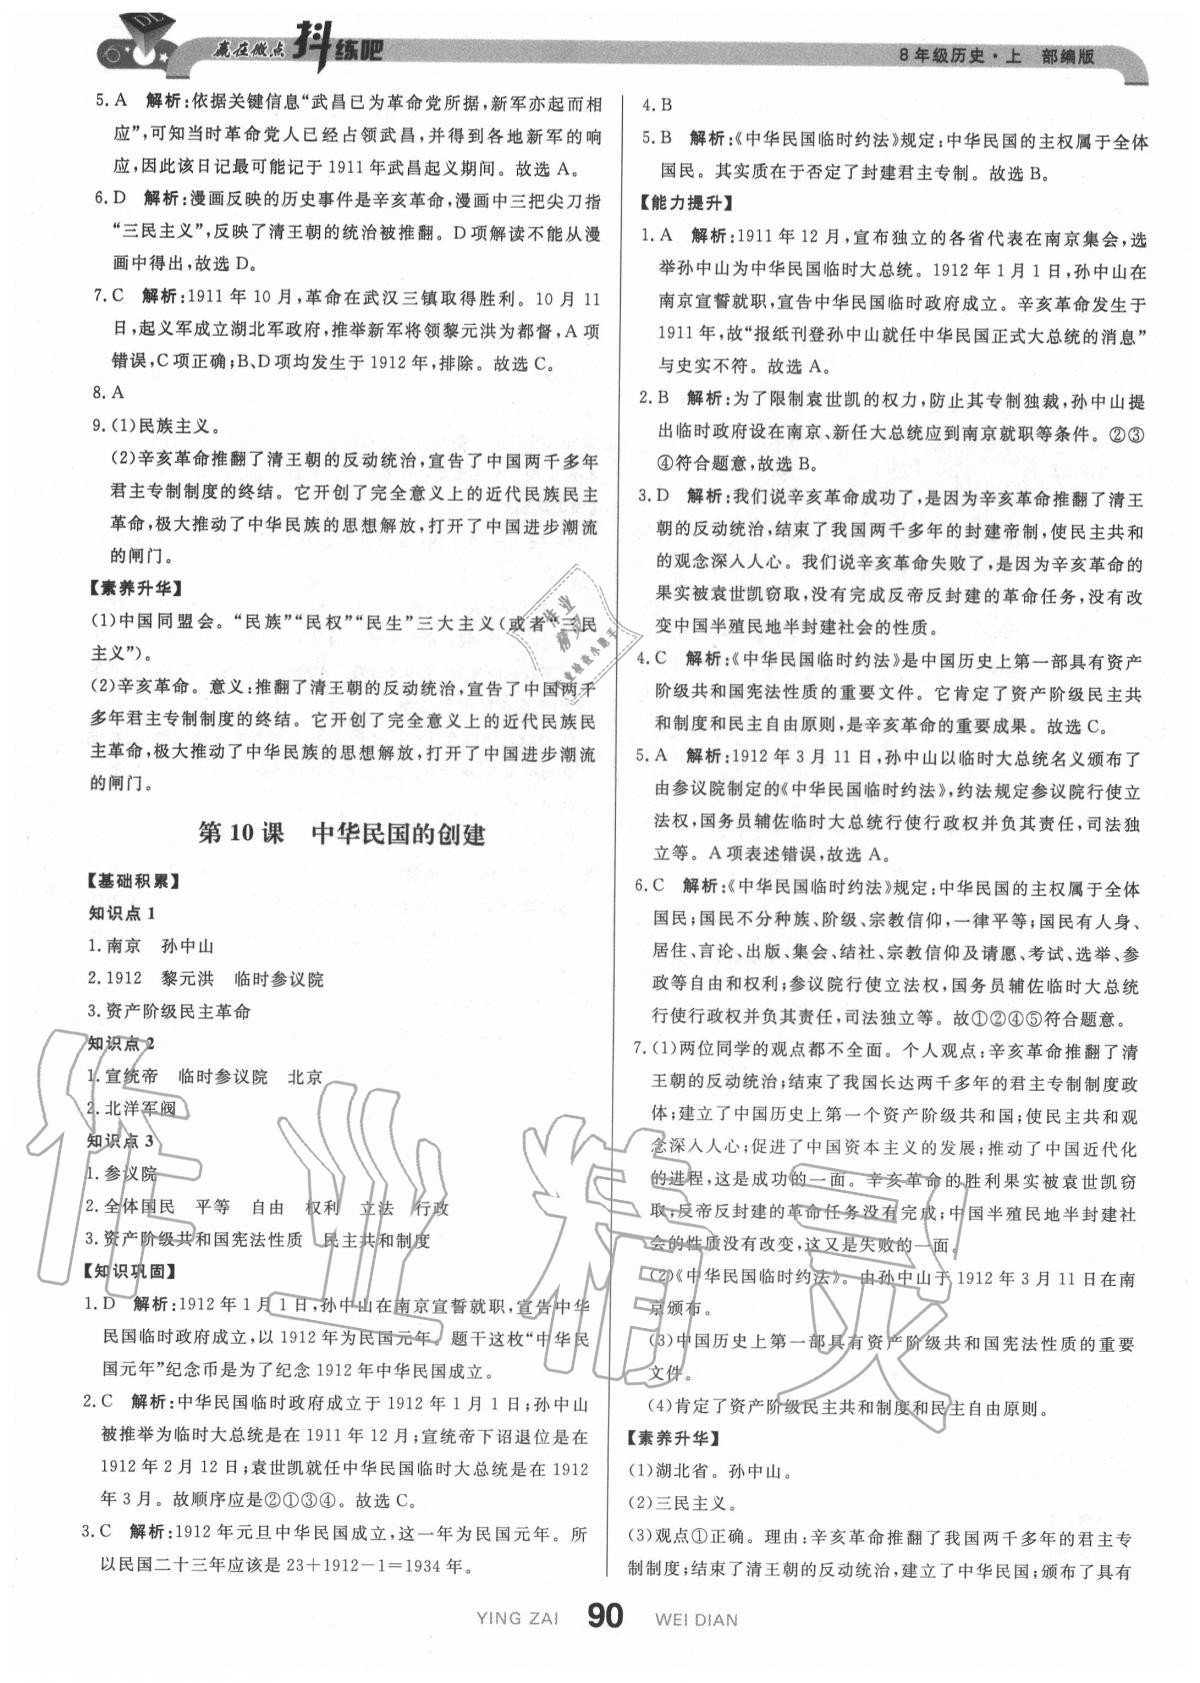 DL
赢在微点 抖练吧
8年级历史·上 部编版
5. A 解析:依据关键信息“武昌已为革命党所据,新军亦起而相
应”,可知当时革命党人已经占领武昌,并得到各地新军的响
应,因此该日记最可能记于1911年武昌起义期间。故选A。
6. D 解析:漫画反映的历史事件是辛亥革命,漫画中三把尖刀指
“三民主义”,反映了清王朝的统治被推翻。D项解读不能从漫
画中得出,故选D。
7. C 解析:1911年10月,革命在武汉三镇取得胜利。10月11
日,起义军成立湖北军政府,推举新军将领黎元洪为都督,A项
错误,C项正确;B、D项均发生于1912年,排除。故选C。
8. A
9. (1)民族主义。
(2)辛亥革命推翻了清王朝的反动统治,宣告了中国两千多年
君主专制制度的终结。它开创了完全意义上的近代民族民主
革命,极大推动了中华民族的思想解放,打开了中国进步潮流
的闸门。
【素养升华】
(1)中国同盟会。“民族”“民权”“民生”三大主义(或者“三民
主义”)。
(2)辛亥革命。意义:推翻了清王朝的反动统治,宣告了中国两千
多年君主专制制度的终结。它开创了完全意义上的近代民族民
主革命,极大推动了中华民族的思想解放,打开了中国进步潮流
的闸门。
第10课 中华民国的创建
【基础积累】
知识点1
1. 南京 孙中山
2. 1912 黎元洪 临时参议院
3. 资产阶级民主革命
知识点2
1. 宣统帝 临时参议院 北京
2. 北洋军阀
知识点3
1. 参议院
2. 全体国民 平等 自由 权利 立法 行政
3. 资产阶级共和国宪法性质 民主共和制度
【知识巩固】
1. D 解析:1912年1月1日,孙中山在南京宣誓就职,宣告中华
民国临时政府成立,以1912年为民国元年。题干这枚“中华民
国元年”纪念币是为了纪念1912年中华民国成立。
2. C 解析:中华民国临时政府成立于1912年1月1日;孙中山
被推举为临时大总统是在1911年12月;宣统帝下诏退位是在
1912年2月12日;袁世凯就任中华民国临时大总统是在1912
年3月。故顺序应是②①③④。故选C。
3. C 解析:1912年元旦中华民国成立,这一年为民国元年。所
以民国二十三年应该是23+1912-1=1934年。
4. B
5. B 解析:《中华民国临时约法》规定:中华民国的主权属于全体
国民。其实质在于否定了封建君主专制。故选B。
【能力提升】
1. A 解析:1911年12月,宣布独立的各省代表在南京集会,选
举孙中山为中华民国临时大总统。1912年1月1日,孙中山在
南京宣誓就职,宣告中华民国临时政府成立。辛亥革命发生于
1911年,故“报纸刊登孙中山就任中华民国正式大总统的消息”
与史实不符。故选A。
2. B 解析:为了限制袁世凯的权力,防止其专制独裁,孙中山提
出临时政府设在南京、新任大总统应到南京就职等条件。②③
④符合题意,故选B。
3. D 解析:我们说辛亥革命成功了,是因为辛亥革命推翻了清王
朝的反动统治,结束了我国两千多年的封建帝制,使民主共和
的观念深入人心。我们说辛亥革命失败了,是因为辛亥革命的
果实被袁世凯窃取,没有完成反帝反封建的革命任务,没有改
变中国半殖民地半封建社会的性质。
4. C 解析:《中华民国临时约法》是中国历史上第一部具有资产
阶级共和国宪法性质的重要文件。它肯定了资产阶级民主共
和制度和民主自由原则,是辛亥革命的重要成果。故选C。
5. A 解析:1912年3月11日,孙中山以临时大总统名义颁布了
由参议院制定的《中华民国临时约法》,约法规定参议院行使立
法权,国务员辅佐临时大总统行使行政权并负其责任,司法独
立等。A项表述错误,故选A。
6. C 解析:《中华民国临时约法》规定:中华民国的主权属于全体
国民;国民不分种族、阶级、宗教信仰,一律平等;国民有人身、
居住、言论、出版、集会、结社、宗教信仰及请愿、考试、选举、参
政等自由和权利;参议院行使立法权,国务员辅佐临时大总统
行使行政权并负其责任,司法独立等。故①②④⑤符合题意。
7. (1)两位同学的观点都不全面。个人观点:辛亥革命推翻了清
王朝的反动统治;结束了我国长达两千多年的君主专制制度政
体;建立了中国历史上第一个资产阶级共和国;使民主共和观
念深入人心;促进了中国资本主义的发展;推动了中国近代化
的进程,这是成功的一面。辛亥革命的胜利果实被袁世凯窃
取;反帝反封建的革命任务没有完成;中国半殖民地半封建社
会的性质没有改变,这又是失败的一面。
(2)《中华民国临时约法》。由孙中山于1912年3月11日在南
京颁布。
(3)中国历史上第一部具有资产阶级共和国宪法性质的重要
文件。
(4)肯定了资产阶级民主共和制度和民主自由原则。
【素养升华】
(1)湖北省。孙中山。
(2)三民主义。
(3)观点①正确。理由:辛亥革命推翻了我国两千多年的君主专
制制度;结束了清王朝的反动统治,建立了中华民国;颁布了具有
YING ZAI 90 WEI DIAN
作业精灵
作业
精灵